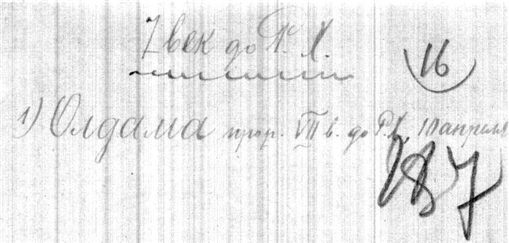 7 век до Р. Х.
16
1) Олдама прор. VII в. до Р.Х. 10 апреля
187